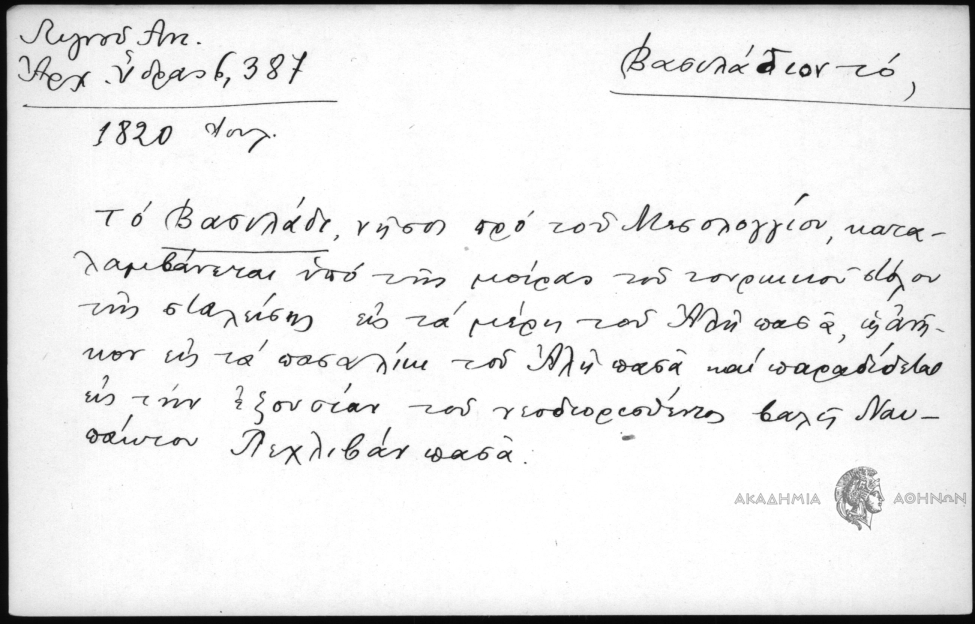 Λιγνοῦ Ἀντ.
Ἀρχ. Ὕδρας 6, 387
Βασιλάδιον τό,
1820 Ἰουλ.
Τό Βασιλάδι, νῆσος πρό τοῦ Μεσολογγίου, κατα-
λαμβάνεται ὑπό τῆς μοίρας τοῦ τουρκικοῦ στόλου
τῆς σταλείσης εἰς τά μέρη τοῦ Ἀλῆ πασᾶ, ὡς ἀνῆ-
κον εἰς τά πασαλίκι τοῦ Ἀλῆ πασᾶ καί παραδίδεται
εἰς τήν ἐξουσίαν τοῦ νεοδιορισθέντος βαλῆ Ναυ-
πάκτου Πεχλιβάν πασᾶ.
ΑΚΑΔΗΜΙΑ ΑΘΗΝΩΝ